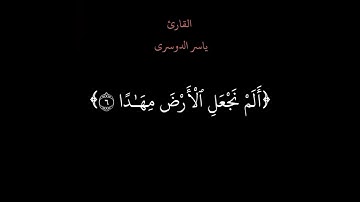 القارئ
ياسر الدوسرى
﴿أَلَمْ نَجْعَلِ ٱلْأَرْضَ مِهَـٰدًا ۝٦﴾